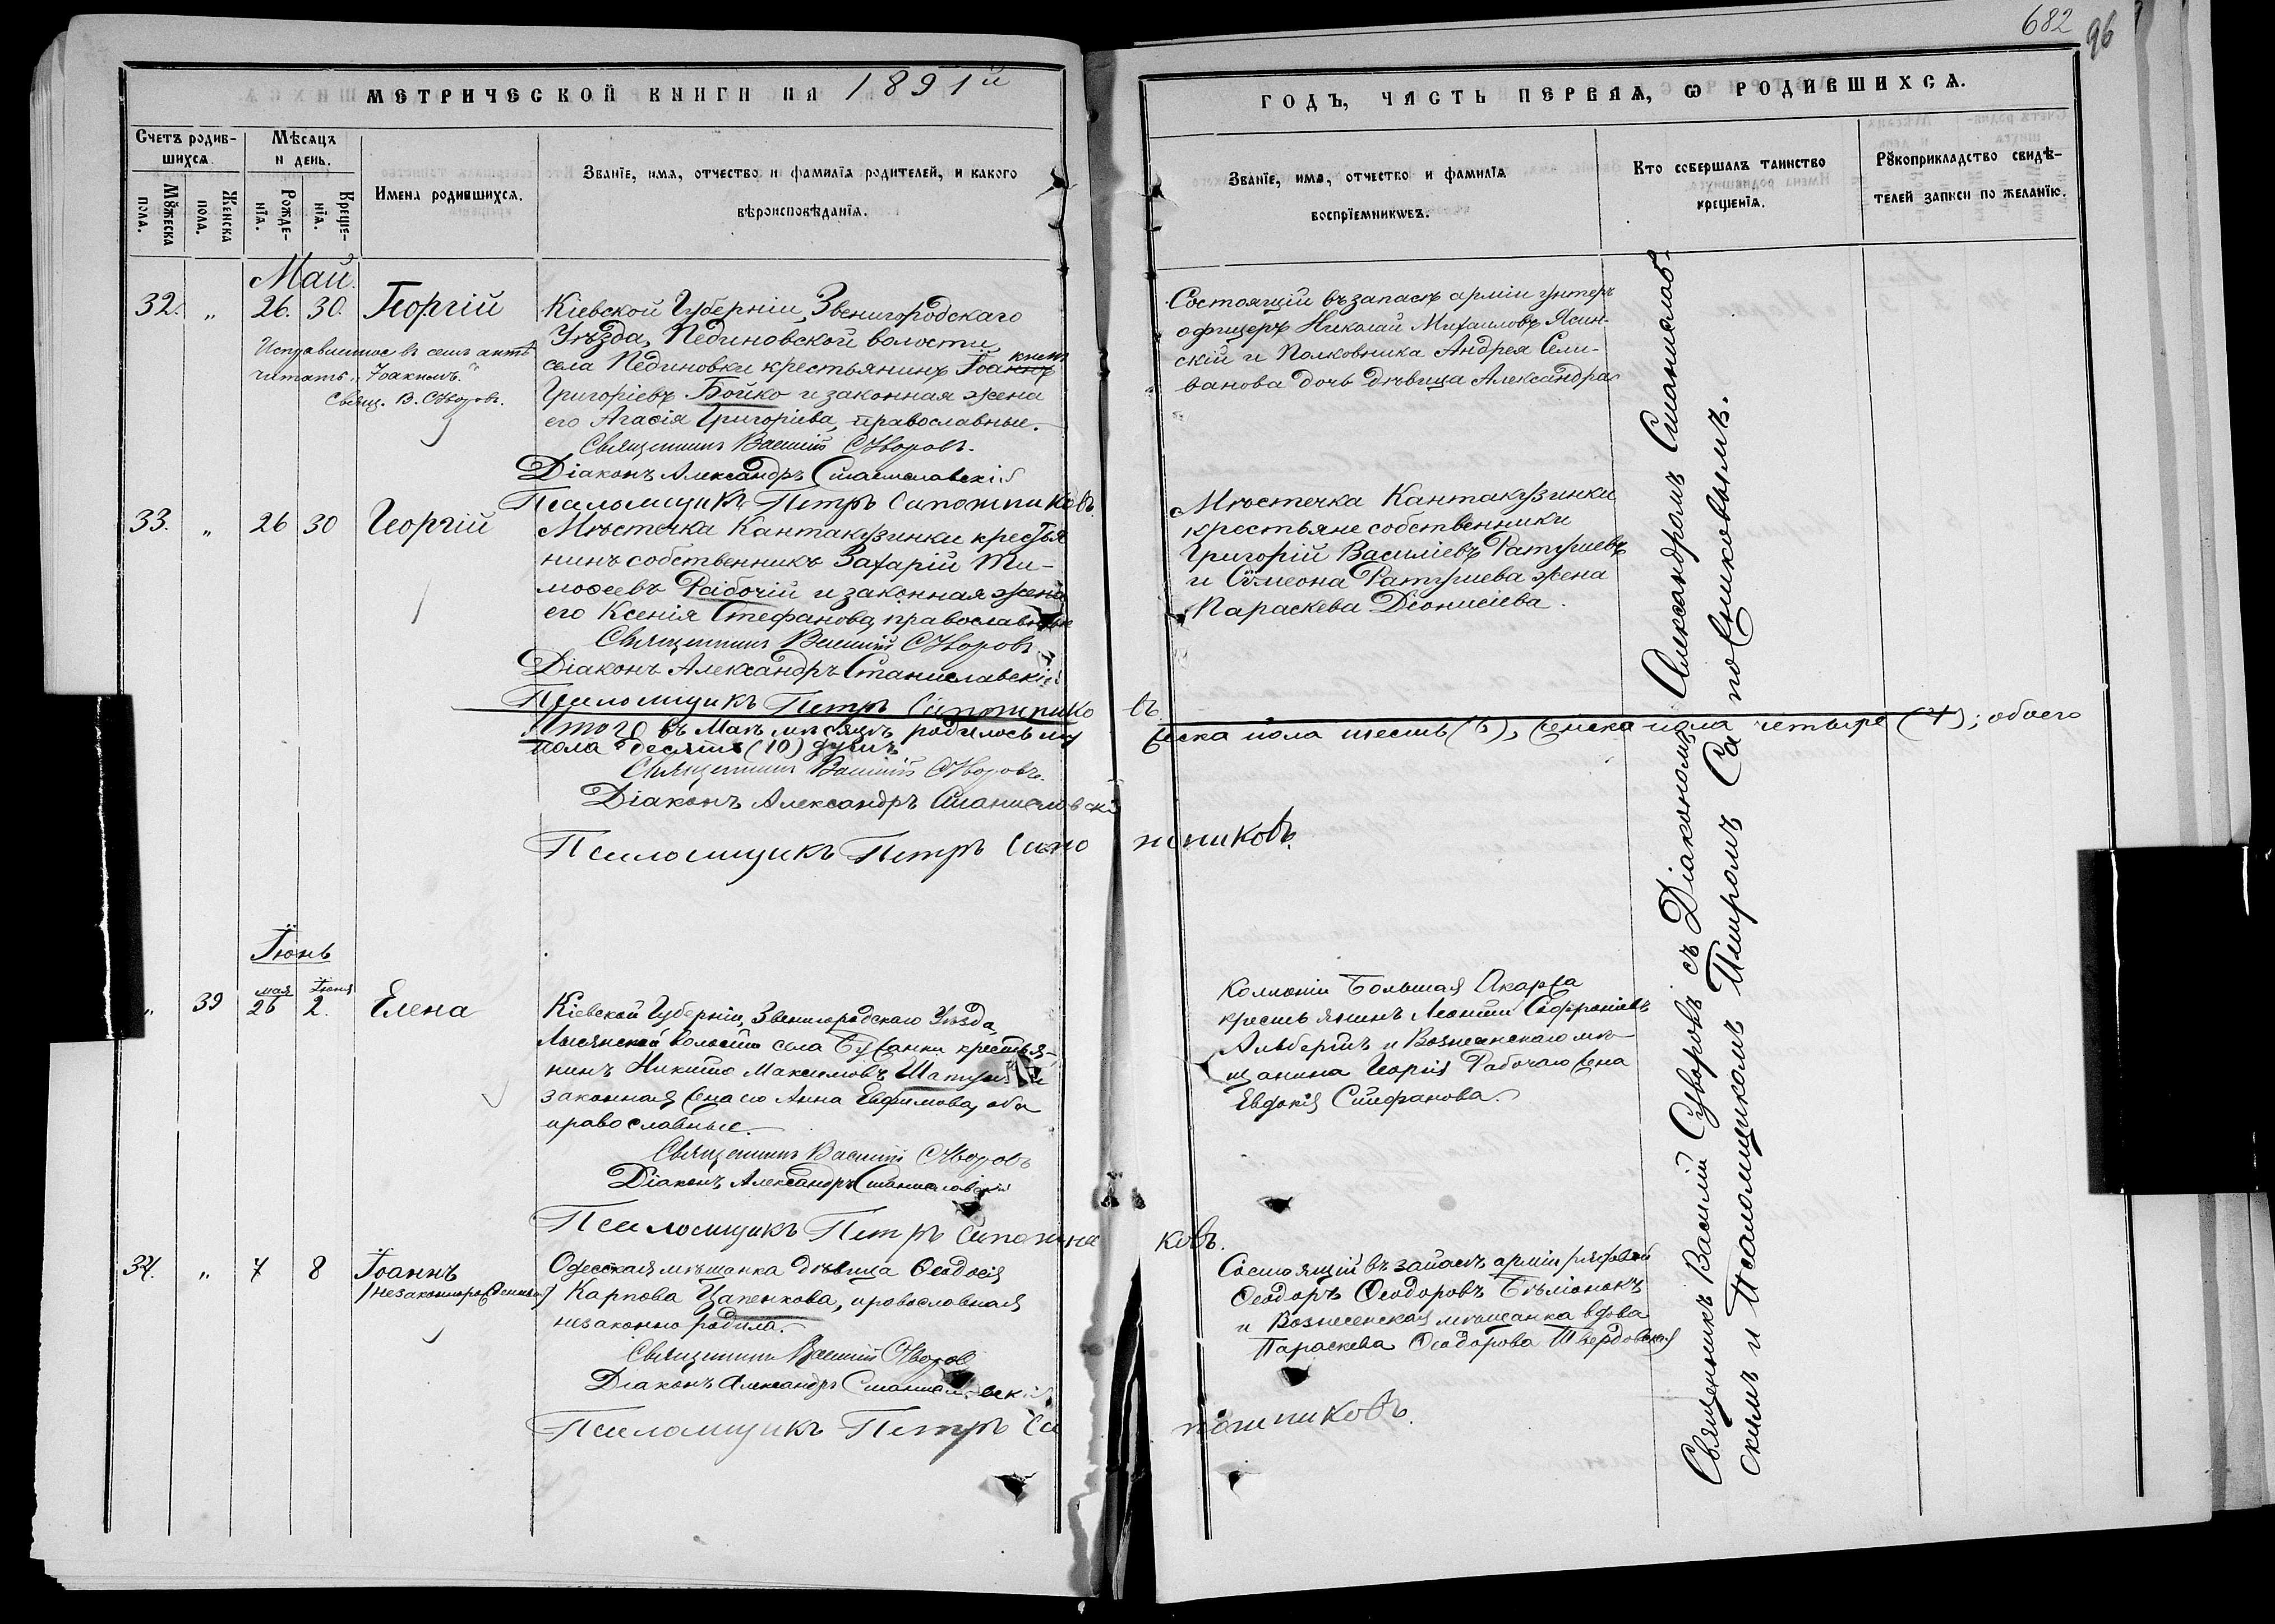 682
96
МЕТРИЧЕСКОЙ КНИГИ НА 1891й
Счетъ родившихся.
Мѣсяцъ и день.
Имена родившихся.
Званіе, имя, отчество и фамилія родителей, и какого вѣроисповѣданія.
Мужеска пола.
Женска пола.
Рожденія.
Крещенія.
Май.
32. " 26. 30. Георгій
Кіевской Губерніи, Звенигородскаго
Уѣзда, Пединовской волости,
села Пединовки крестьянинъ Іоакимъ
Григоріевъ Бойко и законная жена
его Агафія Григоріева, православные.
Исправленное въ семъ актѣ
читать: „Іоакимъ."
Свящ. В. Суворовъ.
Священникъ Василій Суворовъ.
Діаконъ Александръ Станиславскій
Псаломщикъ Петръ Сапожниковъ
33. " 26 30 Георгій
Мѣстечка Кантакузинки крестья
нинъ собственникъ Захарій Ти-
моѳеевъ Рабочій и законная жена
его Ксенія Стефанова, православные
Священникъ Василій Суворовъ
Діаконъ Александръ Станиславскій
Псаломщикъ Петръ Сапожнико въ
Итого въ Маѣ мѣсяцѣ родилось му жеска пола шесть (6), женска пола четыре (4); обоего
пола десять (10) душъ
Священникъ Василій Суворовъ.
Діаконъ Александръ Станиславскій
Псаломщикъ Петръ Сапо жниковъ.
Іюнь
" 39 мая 26 Іюня 2. Елена
Кіевской Губерніи, Звенигородскаго Уѣзда,
Лысянской волости села Бужанки крестья-
нинъ Никита Максимовъ
законная жена его Анна Евфимова, оба
православные.
Священникъ Василій Суворовъ
Діаконъ Александръ Станиславскій
Псаломщикъ Петръ Сапожни ковъ.
34. " 7 8 Іоаннъ
/незаконнорожденный/
Одесская мѣщанка дѣвица Ѳеодосія
Карпова Цапенкова, православная
незаконно родила.
Священникъ Василій Суворовъ
Діаконъ Александръ Станиславскій
Псаломщикъ Петръ Са пожниковъ.
ГОДЪ, ЧАСТЬ ПЕРВАЯ, Ѡ РОДИВШИХСЯ.
Званіе, имя, отчество и фамилія воспріемниковъ.
Кто совершалъ таинство крещенія.
Рукоприкладство свидѣтелей записи по желанію.
Состоящій въ запасѣ арміи унтеръ
офицеръ Николай Михаиловъ Ясин-
скій и Полковника Андрея Сели-
ванова дочь дѣвица Александра
Мѣстечка Кантакузинки
крестьяне собственники
Григорій Василіевъ Ратушевъ
и Симеона Ратушева жена
Параскева Діонисіева.
Колоніи Большая Акаржа
крестьянинъ Леонтій Софроніевъ
Альбертъ и Вознесенскаго мѣ-
щанина Георгія Рабочаго жена
Евдокія Стефанова.
Состоящій въ запасѣ арміи рядовой
Ѳеодоръ Ѳеодоровъ Бѣліонокъ
и Вознесенская мѣщанка вдова
Параскева Ѳеодорова Твердовская
Священникъ Василій Суворовъ съ Діакономъ Александромъ Станиславскимъ и Псаломщикомъ Петромъ Сапожниковымъ.